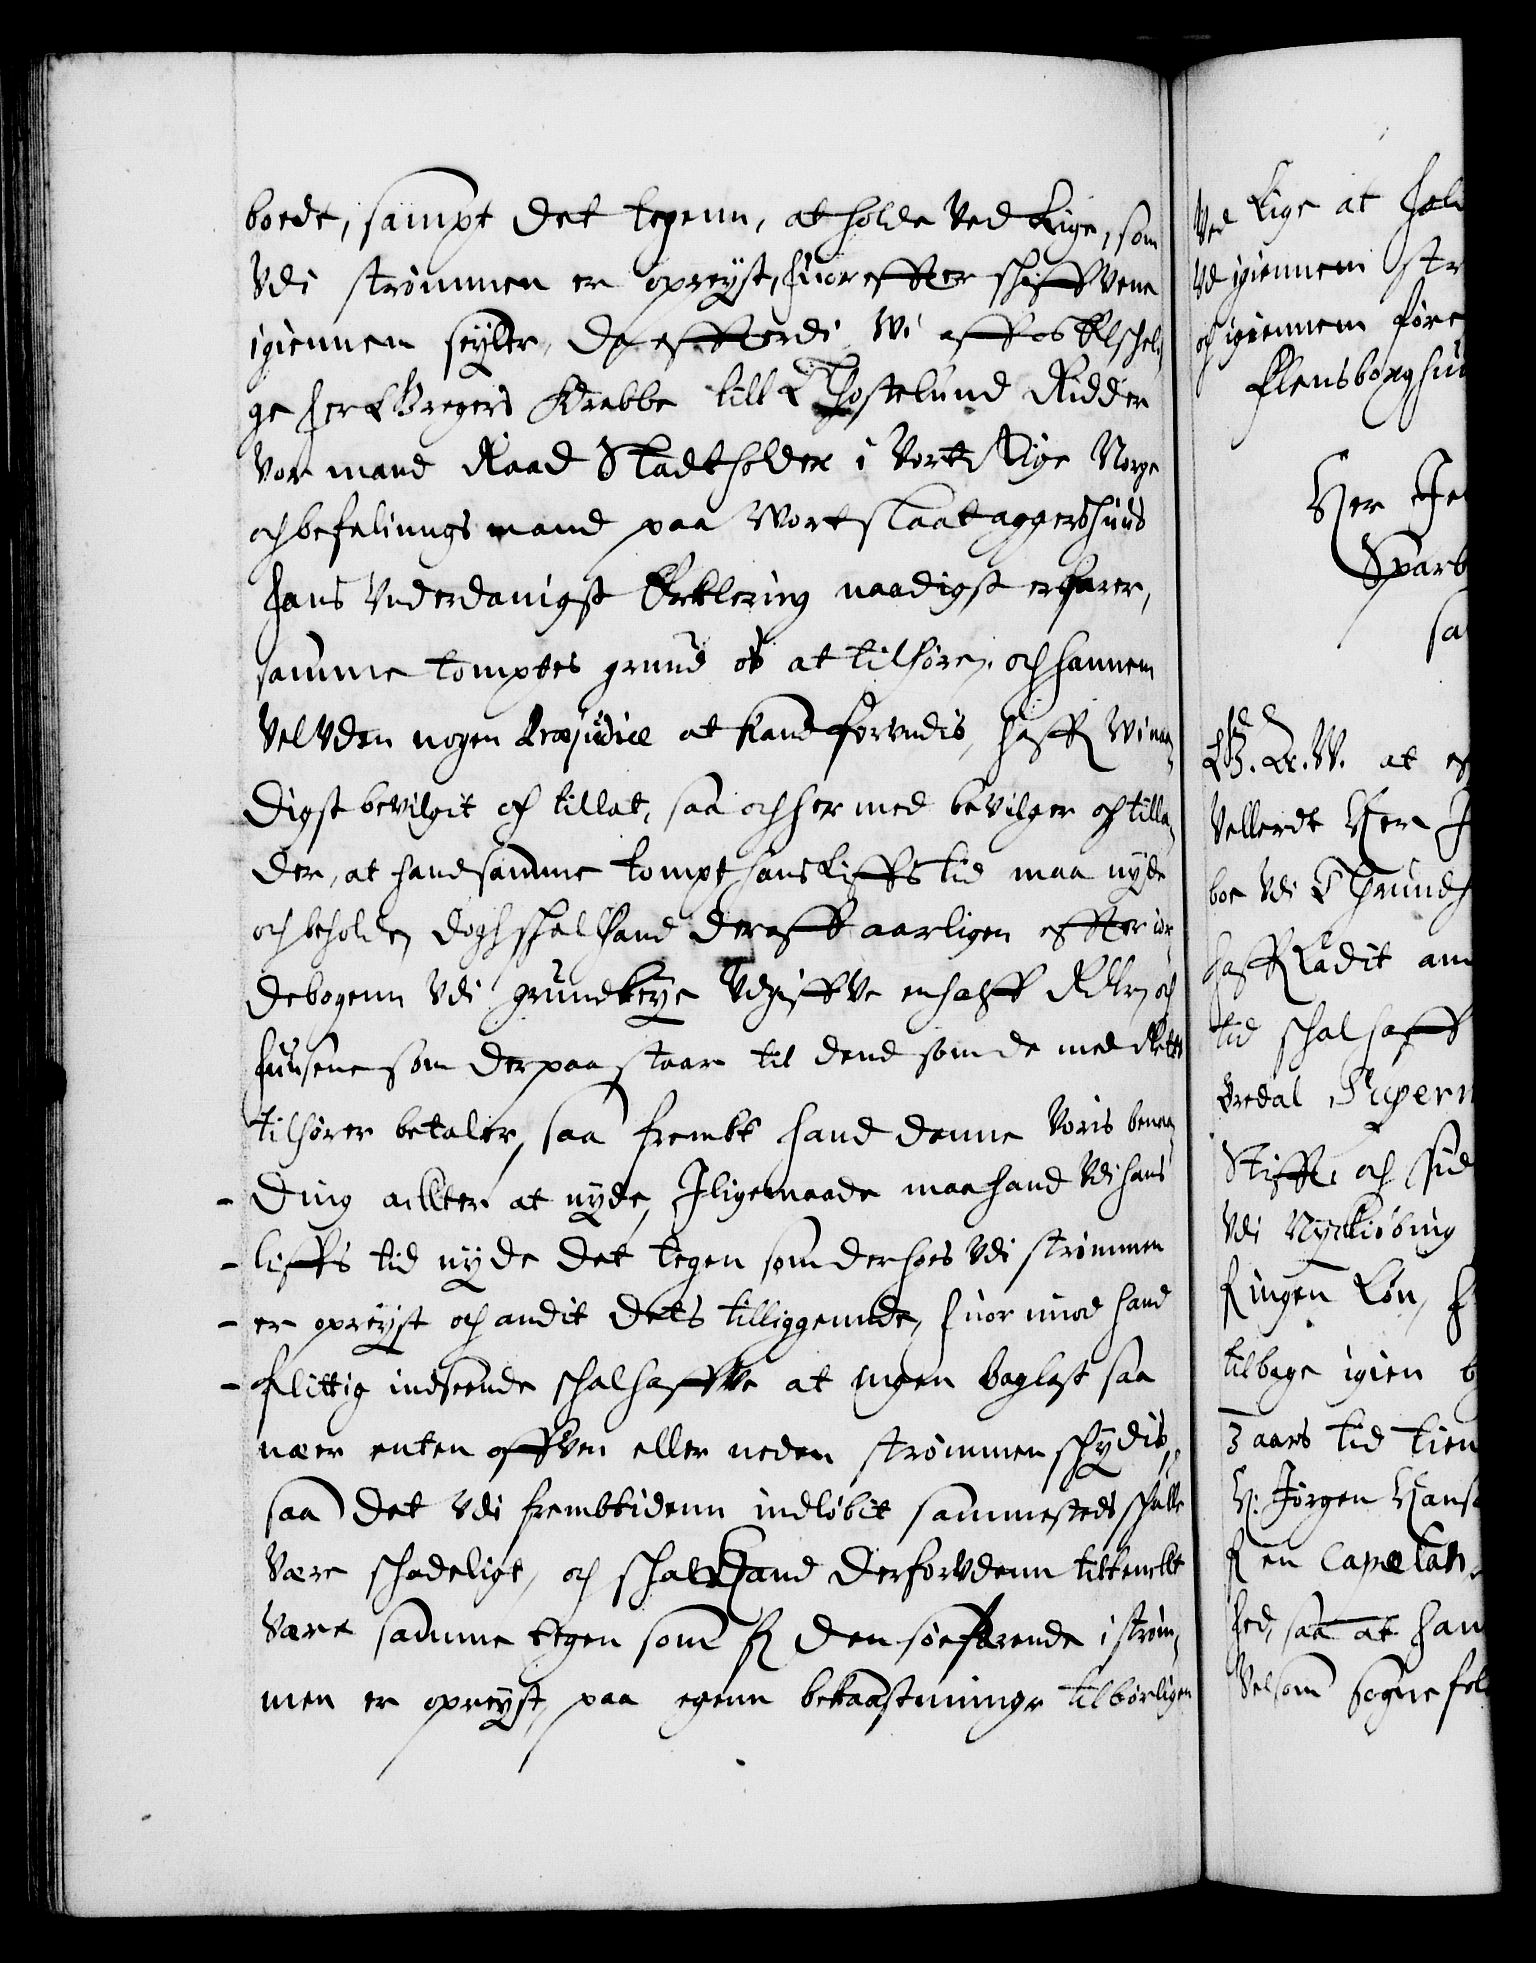 boedt, sampt det tegenn, at holde ved Lige, som
vdi strømmen er opreyst, huor effter schiffvene
igiennem seyler, da effterdi Wi aff os Elscheli
ge her Gregers Krabbe till Thostelund Ridder
vor mand Raad Stadtholder i vort Rige Norge
och befalinngs mand paa Wort slaat aggershuus
hans vnderdanigst Erklering naadigst erfarer,
samme tomptes grund os at tilhøre, och hannem
vel vden nogen Præjudice at kand forundis, haffr Wi naa,
digst bevilgit och tillat, saa och her med bevilger och tilla,
der, at hand samme tompt hans Liffs tid maa nyde
och beholde, dogh schal hand deraff aarligen effter ior
debogenn vdi grundleye vdgiffve en halff Rdlr, och
huusene som derpaa staar til dend som de med Rette
tilhører betaler, saa frembt hand denne voris benaa,
ding achter at nyde, Jligemaade maa hand vdi hans
liffs tid nyde det tegen som derhoes vdi strømmen
er opreyst och andit dets tilliggennde, huor imod hand
flittig indseende schal haffve at ingen baglast saa
nær enten offven eller neden strømmen schydis,
saa det vdi frembtidenn indløbit sammesteds schulle
være schadeligt, och schal Hand derforvdenn tiltenckt
være samme tegen som fr den søefarende i strøm,
men er opreyst, paa egenn bekaastninge tilbørligen
ved Lige at hol
vd igiennem str
och igiennem føre
Flensborghuu
Her Je
Sparb
sa
G. A. W. at ef
vellerdt Her J
boe vdi Thrundh
haffr Ladit an
tid schal haff
Ordal Superin
Stifft, och sid
vdi Nyckiøbing
fr ingen Løn, h
tilbage igien b
3 aars tid tien
H: Jørgen Hans
fr en Capelan
hed, saa at han
vel som sogne fol